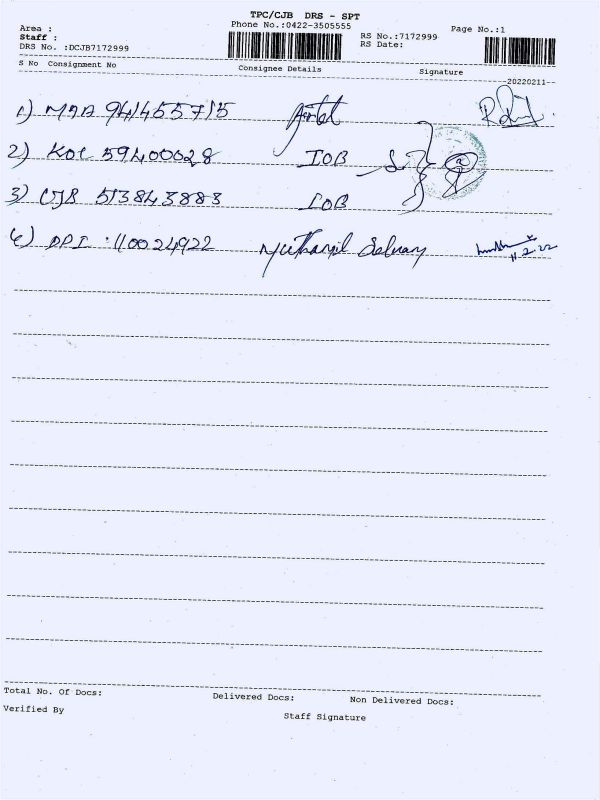 TPC/CJB DRS - SPT
Area :
Phone No.:0422-3505555
Page No.:1
Staff :
RS No.:7172999
DRS No. :DCJB7172999
RS Date:
S No Consignment No
Consignee Details
Signature
20220211
1) MAA 941455715
2) KOL 59400028 IOB
3) CJB 513843883 IOB
4) DPI 110024922 Muthamil Selvam
11.2.22
Total No. Of Docs:
Delivered Docs:
Non Delivered Docs:
Verified By
Staff Signature